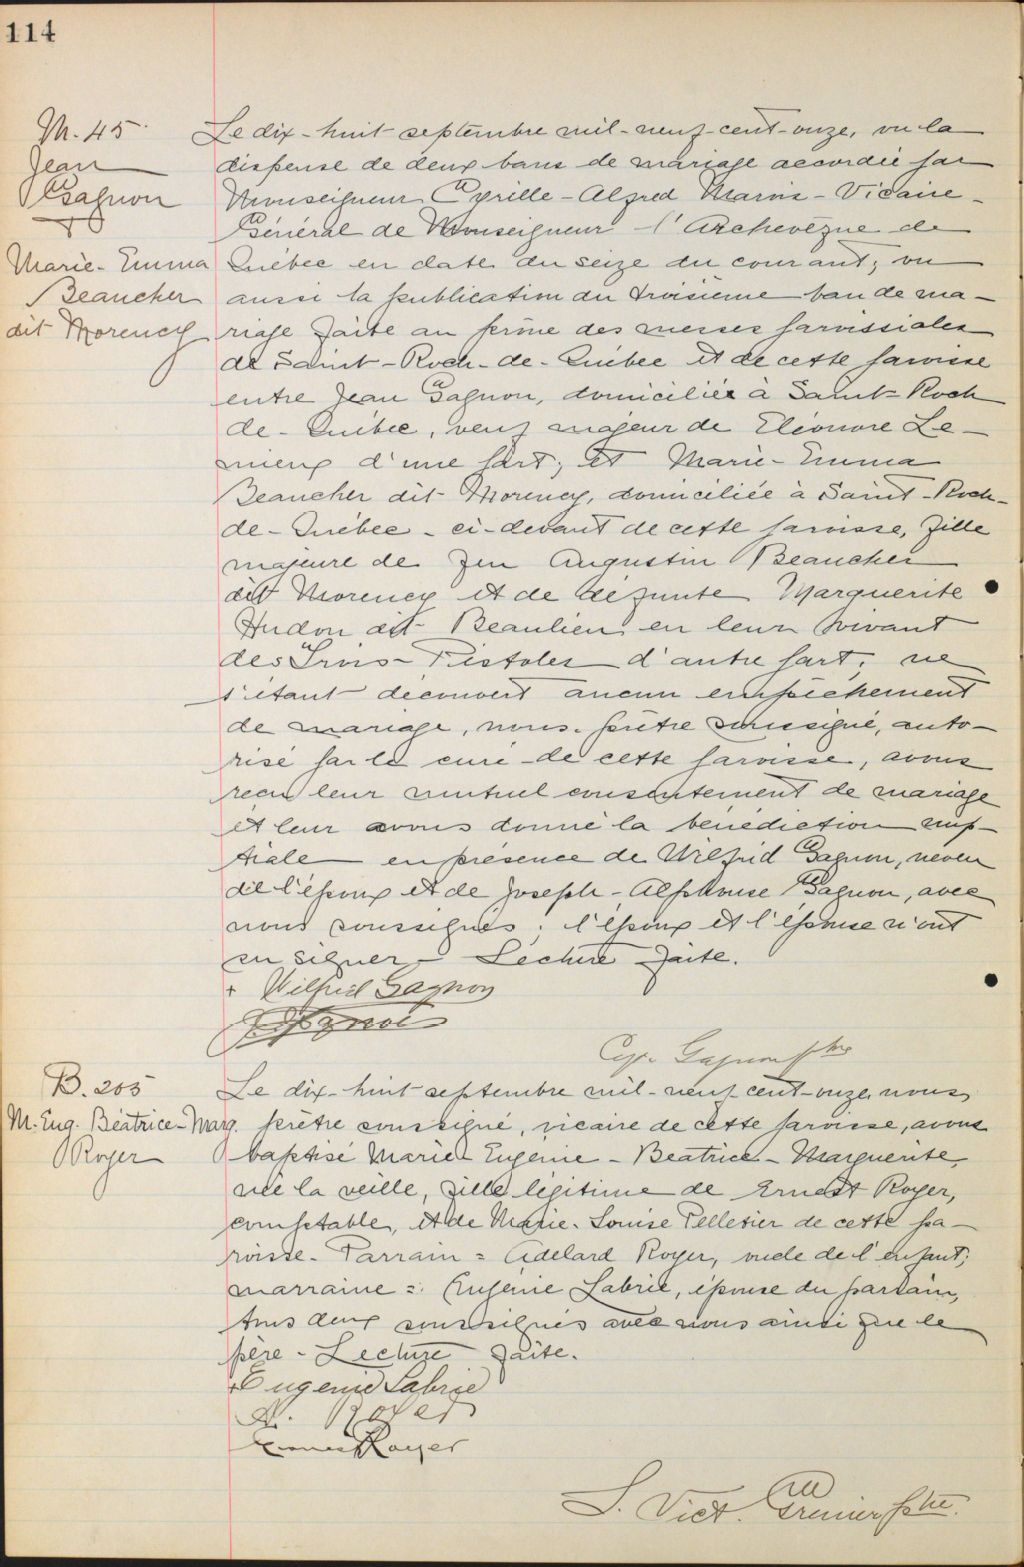 114
M. 45
Jean
Gagnon
&
Marie-Emma
Beaucher
dit Morency
Le dix-huit septembre mil-neuf-cent-onze, vu la
dispense de deux bans de mariage accordée par
Monseigneur Cyrille-Alfred Marois-Vicaire-
Général de Monseigneur l'Archevêque de
Québec en date du seize du courant; vu
aussi la publication du troisième ban de ma-
riage faite au prône des messes paroissiales
de Saint-Roch-de-Québec et de cette paroisse
entre Jean Gagnon, domicilié à Saint-Roch
de-Québec, veuf majeur de Eléonore Le-
mieux d'une part; et Marie-Emma
Beaucher dit Morency, domiciliée à Saint-Roch-
de-Québec - ci-devant de cette paroisse, fille
majeure de feu Augustin Beaucher
dit Morency et de défunte Marguerite
Hudon dit Beaulieu en leur vivant
des Trois-Pistoles d'autre part; ne
s'étant découvert aucun empêchement
de mariage, nous, prêtre soussigné, auto-
risé par le curé de cette paroisse, avons
reçu leur mutuel consentement de mariage
et leur avons donné la bénédiction nup-
tiale en présence de Wilfrid Gagnon, neveu
de l'époux et de Joseph-Alphonse Gagnon, avec
nous soussignés; l'époux et l'épouse n'ont
su signer - Lecture faite.
+ Wilfrid Gagnon
Gagnon
Cyp. Gagnon ptre
B. 205
M. Eug. Béatrice-Marg.
Royer
Le dix-huit septembre mil-neuf-cent-onze, nous,
prêtre soussigné, vicaire de cette paroisse, avons
baptisé Marie-Eugénie-Beatrice-Marguerite,
née la veille, fille légitime de Ernest Royer,
comptable, et de Marie-Louise Pelletier de cette pa-
roisse. Parrain = Adelard Royer, oncle de l'enfant;
marraine = Eugénie Labrie, épouse du parrain,
tous deux soussignés avec nous ainsi que le
père - Lecture faite.
+ Eugenie Labrie
A. Royer
Ernest Royer
S. Vict. Grenier ptre.